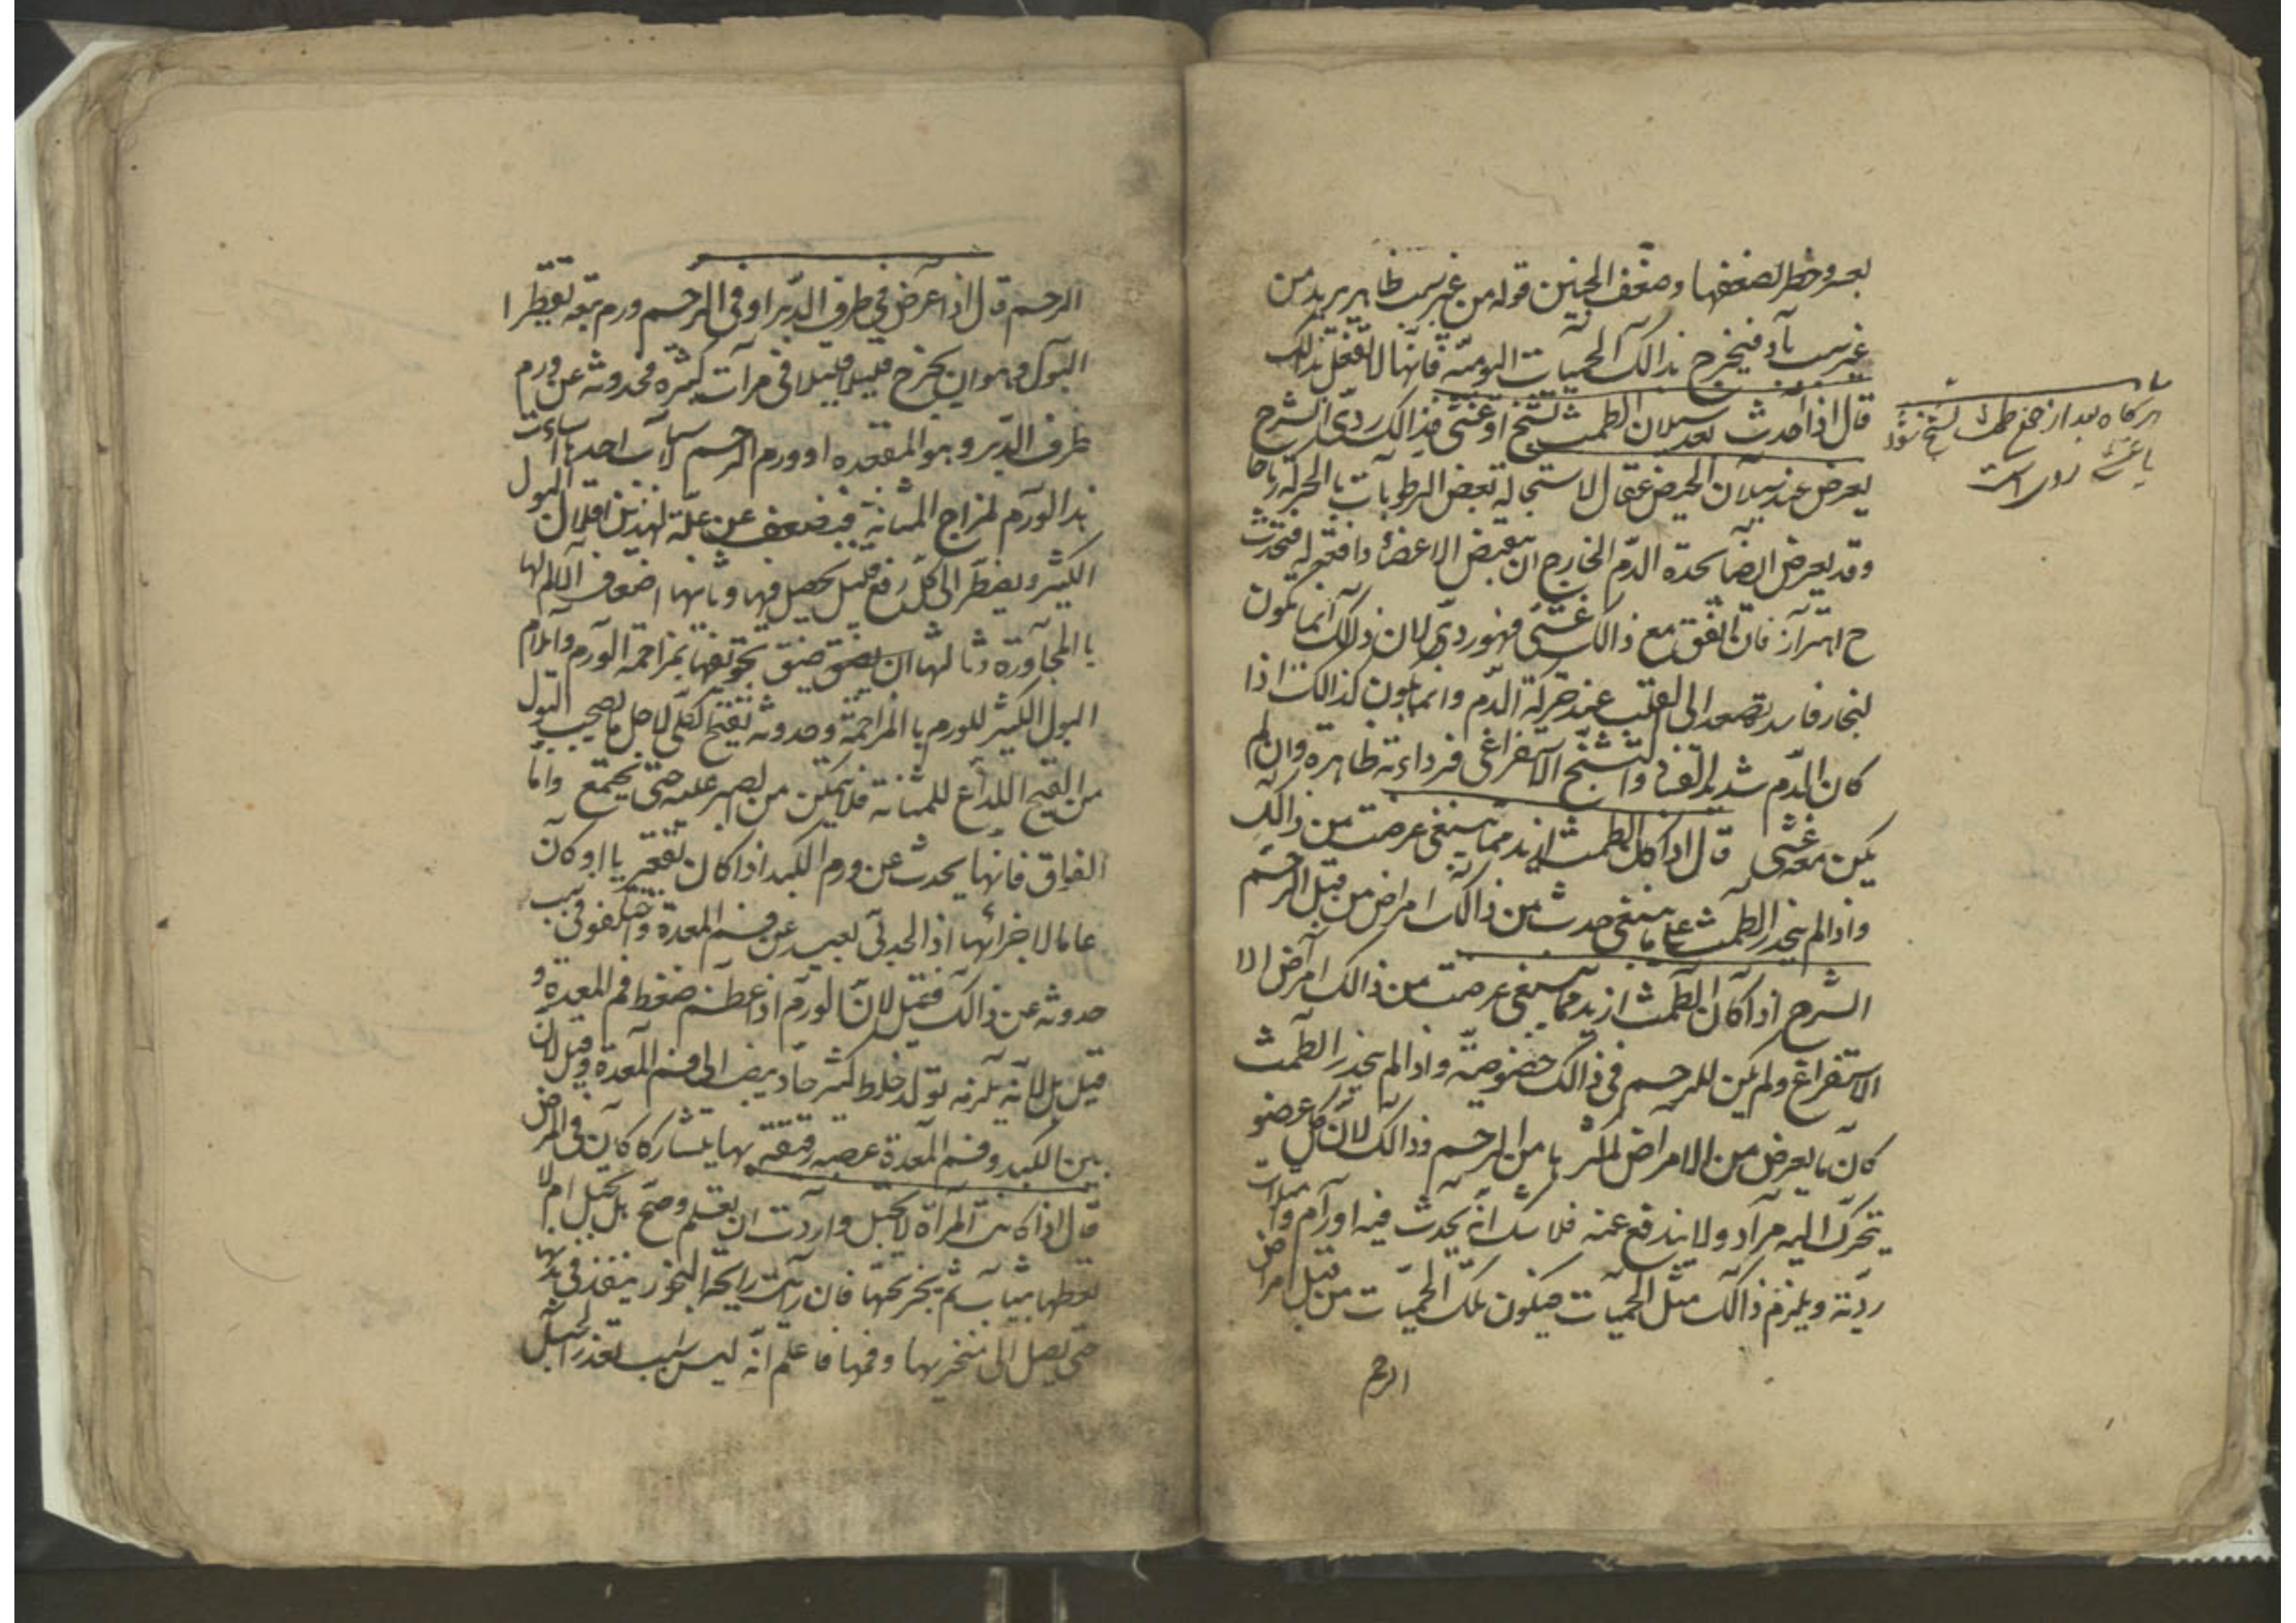 بعسر وخطر لضعفها وضعف الجنين قوله من غير سبب ظاهر يريد من
غير سبب باد فيخرج بذالك الحميات اليومية فانها لا تفعل ذالك
قال اذا حدث بعد سيلان الطمث تشنج او غشى فذالك ردى الشرح
يعرض عند سيلان الحيض لاستحالة بعض الرطوبات بالحركة رياحا
وقد يعرض ايضا بحدة الدم الخارج ان يقبض الاعضاء دافعة له فتحدث
ح اهتزاز فان اتفق مع ذالك غشى فهو ردى لان ذلك انما يكون
لبخار فاسد يصعد الى القلب عند حركة الدم وانما يكون كذالك اذا
كان الدم شديد الفساد والتشنج الاستفراغى فرداءته ظاهرة وان لم
يكن معه غشى قال اذا كان الطمث ازيد مما ينبغى عرضت من ذالك
واذا لم ينحدر الطمث على ما ينبغى حدث من ذالك امراض من قبل الرحم
الشرح اذا كان الطمث ازيد مما ينبغى عرضت من ذالك امراض الا
الاستفراغ ولم يكن للرحم فى ذالك خصوصية واذا لم ينحدر الطمث
كان ما يعرض من الامراض من الرحم وذالك لان كل عضو
يتحرك اليه مواد ولا يندفع عنه فلا شك انه يحدث فيه اورام
ردية ويلزم ذالك مثل الحميات فيكون تلك الحميات من قبل امراض
الرحم
هركاه بعد از طمث تشنج شود
يا غشى ردى است
الرحم قال اذا عرض فى طرف الدبر او فى الرحم ورم تبعه تقطير ا
البول وهو ان يخرج قليلا قليلا فى مرات كثيرة فحدوثه عن ورم
طرف الدبر وهو المقعدة او ورم الرحم لاسباب احدها
هذا الورم لمزاج المثانة فيضعف عن اقلال البول
الكثير ويضطر الى كل دفع قليل يحصل فيها وثانيها اضعاف الالم لها
بالمجاورة وثالثها ان يضيق تجويفها بمزاحمة الورم وايلام
البول الكثير للورم بالمزاحمة وحدوثه لاجل ما يصحب البول
من القيح اللذاع للمثانة فلا يتمكن من الصبر عليه حتى يجتمع واما
الفواق فانها يحدث عن ورم الكبد اذا كان تقعيريا او كان
عاما لاجزائها اذ الحدبى بعيد عن فم المعدة واختلفوا فى سبب
حدوثه عن ذالك فقيل لان الورم اذا عظم ضغط فم المعدة و
قيل بل لانه يلزمه تولد خلط كثير حاد ينصب الى فم المعدة وقيل لان
بين الكبد وفم المعدة عصبة رقيقة بها يتشاركان فى المرض
قال اذا كانت المرأة لا تحبل واردت ان تعلم هل تحبل ام لا
فغطها بثياب ثم بخر تحتها فان رأيت رايحة البخور ينفذ فى بدنها
حتى يصل الى منخريها وفمها فاعلم انه ليس سبب تعذر الحبل